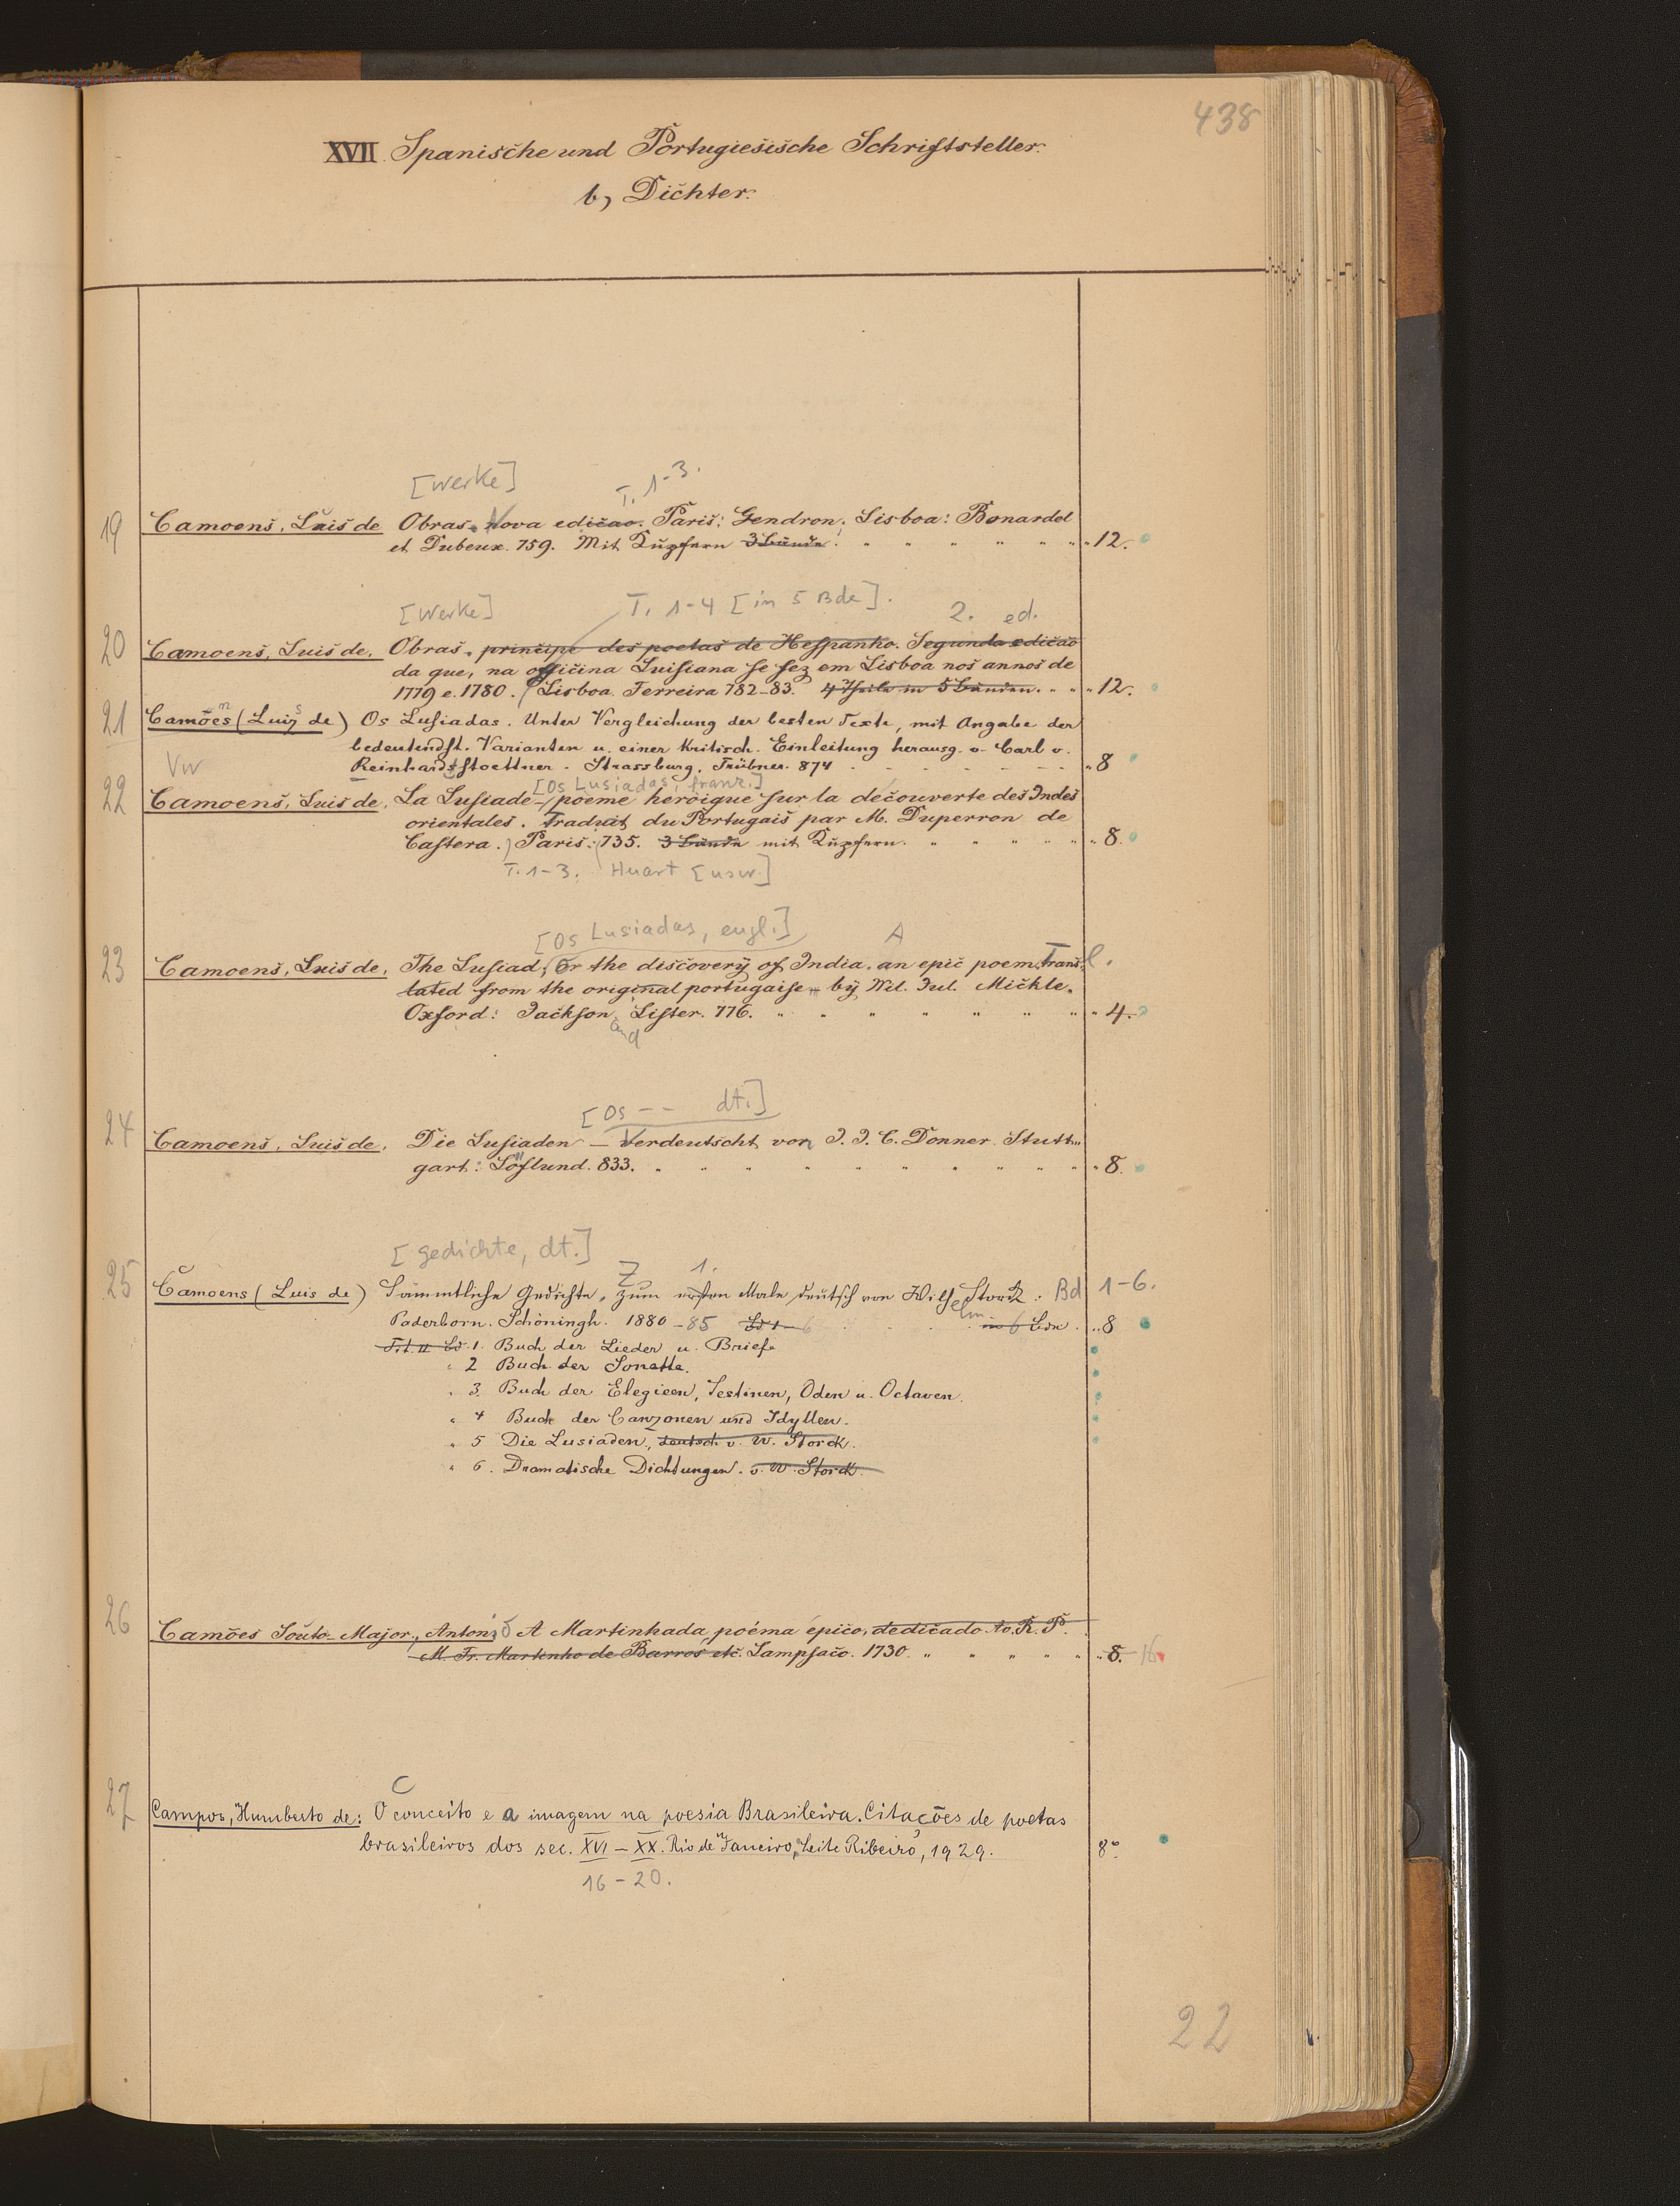 438
XVII. Spanische und Portugiesische Schriftsteller.
b, Dichter.
[Werke] T. 1-3.
19 Camoens, Luis de Obras. Nova edicao. Paris: Gendron; Lisboa: Bonardel
et Dubeux. 759. Mit Kupfern 3 Bände. " " " " " " "12.
[Werke] T. 1-4 [in 5 Bde]. 2. ed.
20 Camoens, Luis de. Obras. principe des poetas de Hespanho. Segunda edicao
da que, na officina Luisiana se fez em Lisboa nos annos de
1779 e. 1780. Lisboa. Ferreira 782-83. 4 Theile in 5 Bänden. " " "12.
21 Camoës (Luis de) Os Lusiadas. Unter Vergleichung der besten Texte, mit Angabe der
bedeutendst. Varianten u. einer kritisch. Einleitung herausg. v. Carl v.
Vw Reinhardstoettner. Strassburg. Trübner. 874 "8
[Os Lusiadas, franz.]
22 Camoens, Luis de. La Lusiade - poeme heroique sur la decouverte des Indes
orientales. Traduit du Portugais par M. Duperron de
Castera. Paris: 735. 3 Bände mit Kupfern. " " " " "8.
T. 1-3. Huart [usw.]
[Os Lusiadas, engl.] A
23 Camoens, Luis de. The Lusiad, Or the discovery of India. an epic poem. Transl.
lated from the original portugaise - by Wil. Jul. Mickle.
Oxford: Jackson and Lister. 776. " " " " " " " "4.
[Os -- dt.]
24 Camoens, Luis de. Die Lusiaden - Verdeutscht von J. J. C. Donner. Stutt"
gart: Löflund. 833. " " " " " " " " " "8.
[Gedichte, dt.]
Z 1.
25 Camoens (Luis de) Sämmtliche Gedichte. Zum ersten Male deutsch von Wilhelm Storck. Bd 1-6.
Paderborn. Schöningh. 1880-85 Bd 1-6 in 6 Bdn. "8
Tit. u. Bd. 1. Buch der Lieder u. Briefe
" 2 Buch der Sonette.
" 3. Buch der Elegieen, Sestinen, Oden u. Octaven.
" 4 Buch der Canzonen und Idyllen.
" 5 Die Lusiaden, deutsch v. W. Storck.
" 6. Dramatische Dichtungen. v. W. Storck.
26 Camões Souto-Major, Antonio A Martinhada, poéma épico, dedicado Ao. R. P.
M. Fr. Martinho de Barros etc. Lampsaco. 1730. " " " " "8. 16
C
27 Campos, Humberto de: O conceito e a imagem na poesia Brasileira. Citações de poetas
brasileiros dos sec. XVI - XX. Rio de Janeiro, Leite Ribeiro, 1929. 8°
16-20.
22